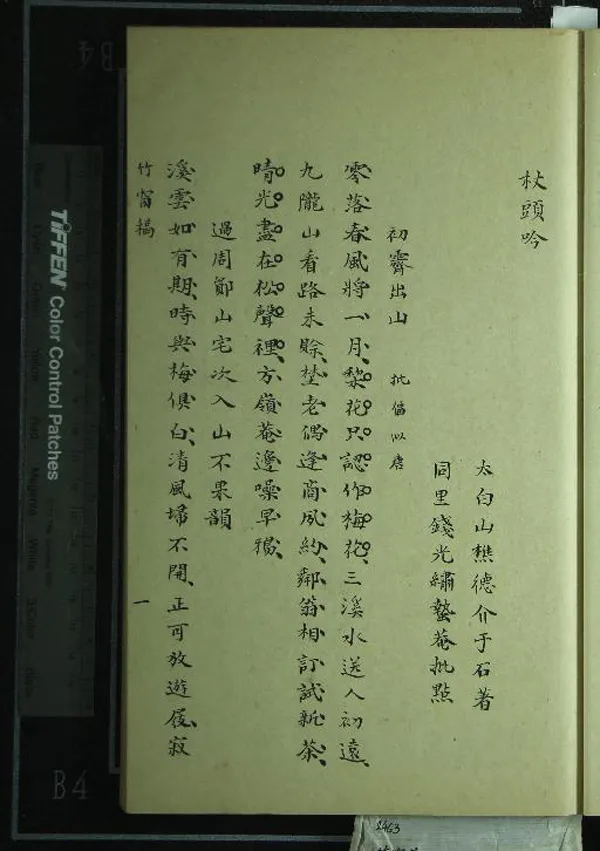 杖頭吟
太白山樵德介于石著
同里錢光繡蟄菴批點
初霽出山 批偪似唐
零落春風將一月梨花只認作梅花三溪水送人初遠
九隴山看路未賒埜老偶逢商夙約鄰翁相訂試新茶
晴光盡在松聲裡方嶺菴邊噪早鴉
過周鄮山宅次入山不果韻
溪雲如有期時與梅俱白清風埽不開正可放遊屐寂
竹窗稿
一
TIFFEN Color Control Patches
B4
B4
2463